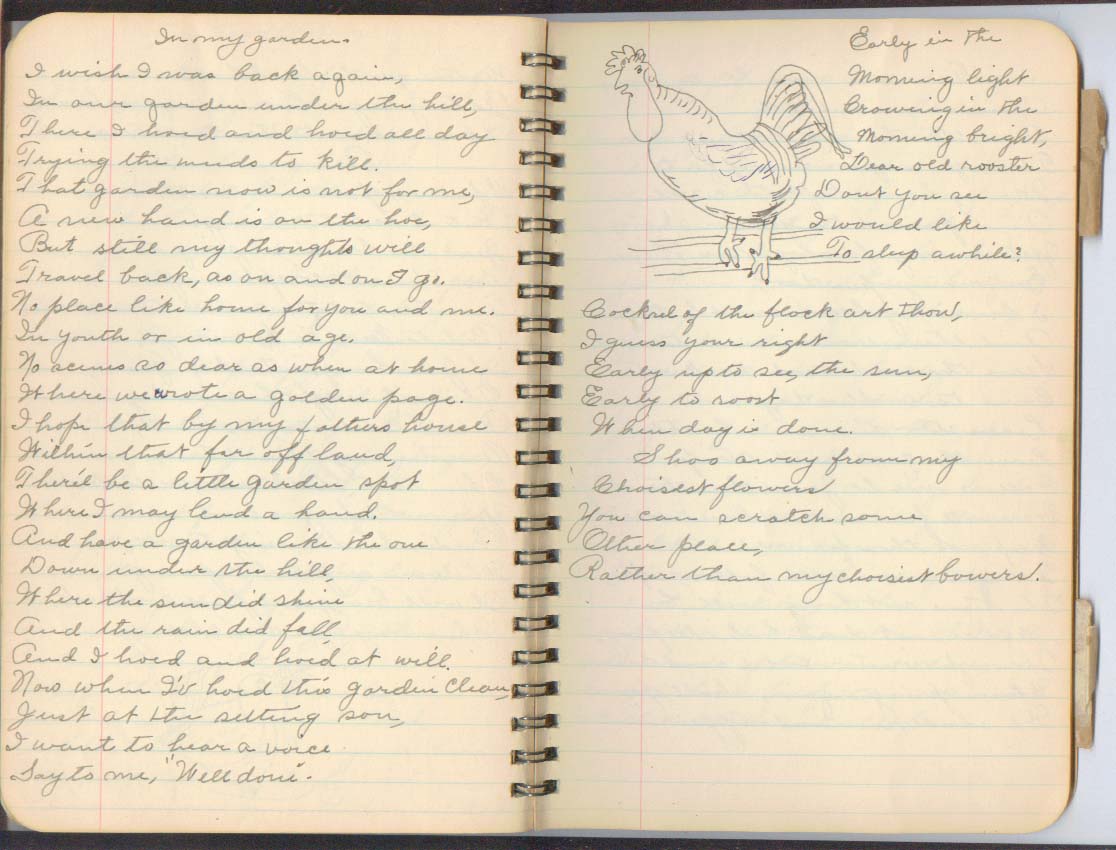 In my garden.
I wish I was back again,
In our garden under the hill,
There I hoed and hoed all day
Trying the weeds to kill.
That garden now is not for me,
A new hand is on the hoe,
But still my thoughts will
Travel back, as on and on I go.
No place like home for you and me.
In youth or in old age.
No scenes so dear as when at home
Where we wrote a golden page.
I hope that by my fathers house
Within that far off land,
There'l be a little garden spot
Where I may lend a hand.
And have a garden like the one
Down under the hill,
Where the sun did shine
And the rain did fall,
And I hoed and hoed at will.
Now when I'v hoed this garden clean,
Just at the setting son,
I want to hear a voice
Say to me, "Well done".
Early in the
Morning light
Crowing in the
Morning bright,
Dear old rooster
Dont you see
I would like
To sleep awhile?
Cockrel of the flock art thou!,
I guess your right
Early up to see, the sun,
Early to roost
When day is done.
Shoo away from my
Choisest flowers
You can scratch some
Other place,
Rather than my choisest bowers!.